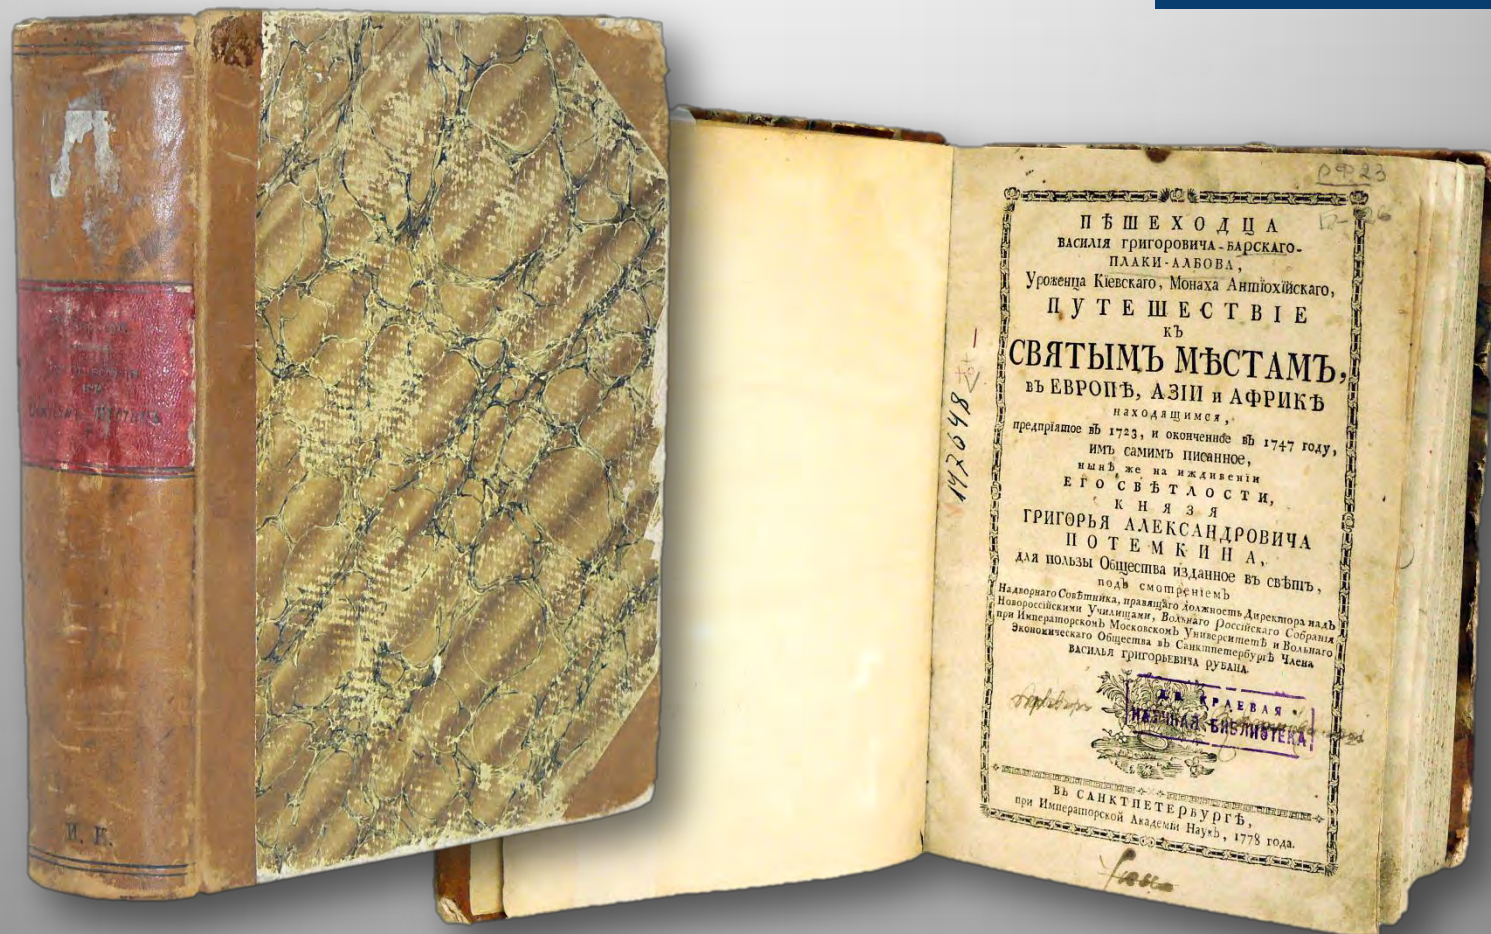 СВЯТЫМЪ МѢСТАМЪ
И. К.
РФ23
ПѢШЕХОДЦА
ВАСИЛІЯ ГРИГОРОВИЧА-БАРСКАГО-
ПЛАКИ-АЛБОВА,
Уроженца Кіевскаго, Монаха Антіохійскаго,
ПУТЕШЕСТВІЕ
КЪ
СВЯТЫМЪ МѢСТАМЪ,
въ ЕВРОПѢ, АЗІИ и АФРИКѢ
находящимся,
предпріятое въ 1723, и оконченное въ 1747 году,
имъ самимъ писанное,
нынѣ же на иждивеніи
ЕГО СВѢТЛОСТИ,
КНЯЗЯ
ГРИГОРЬЯ АЛЕКСАНДРОВИЧА
ПОТЕМКИНА,
для пользы Общества изданное въ свѣтъ,
подъ смотреніемъ
Надворнаго Совѣтника, правящаго должность Директора надъ
Новороссійскими Училищами, Вольнаго Россійскаго Собранія
при Императорскомъ Московскомъ Университетѣ и Вольнаго
Экономическаго Общества въ Санктпетербургѣ Члена
ВАСИЛЬЯ ГРИГОРЬЕВИЧА РУБАНА.
КРАЕВАЯ
НАУЧНАЯ БИБЛИОТЕКА
ВЪ САНКТПЕТЕРБУРГѢ,
при Императорской Академіи Наукъ, 1778 года.
142648